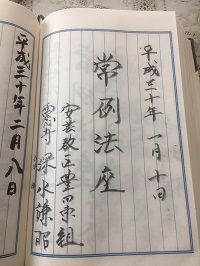 平成三十年一月十日
常例法座
安芸教区豊田東組
深水
平成三十年二月八日